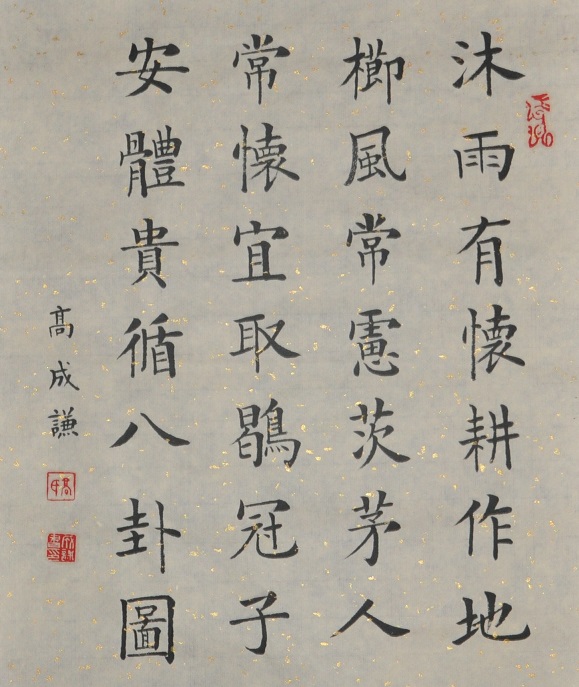 沐雨有懷耕作地
櫛風常慮茨茅人
常懷宜取鶡冠子
安體貴循八卦圖
高成謙